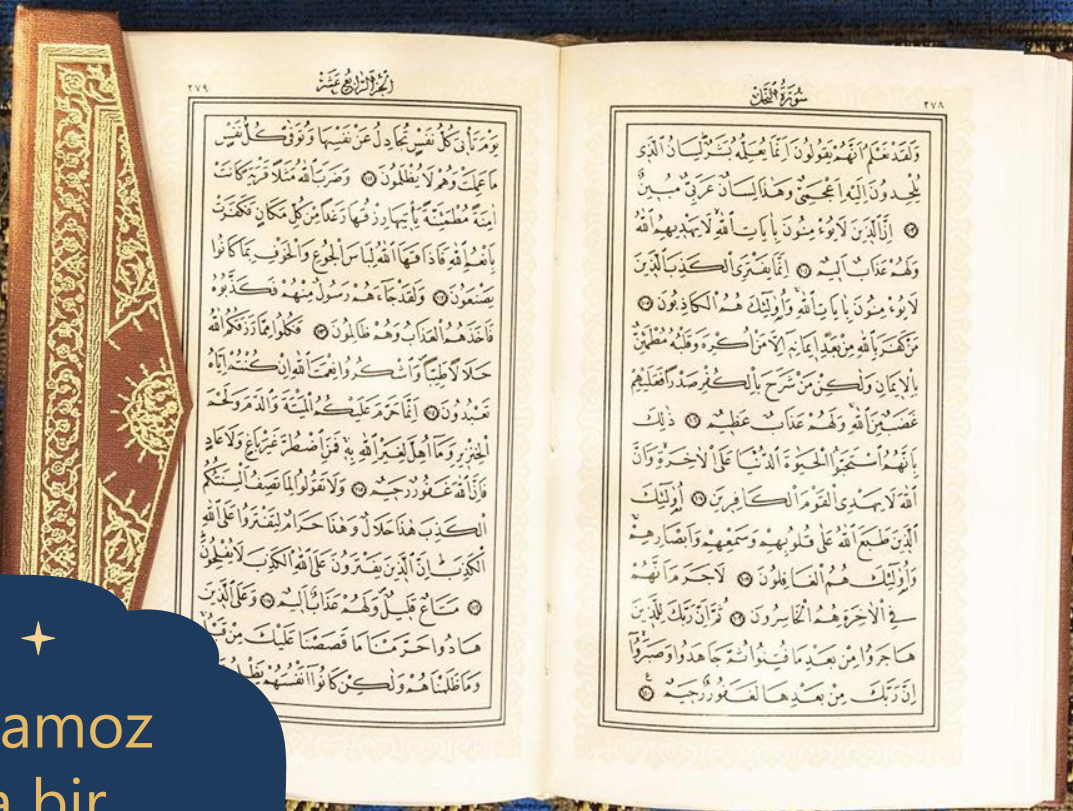 سُورَةُ النَّحْلِ
٢٧٨
وَلَقَدْ نَعْلَمُ اَنَّهُمْ يَقُولُونَ اِنَّمَا يُعَلِّمُهُ بَشَرٌ لِسَانُ الَّذِى
يُلْحِدُونَ اِلَيْهِ اَعْجَمِىٌّ وَهٰذَا لِسَانٌ عَرَبِىٌّ مُبِينٌ
﴿١٠٣﴾ اِنَّ الَّذِينَ لَا يُؤْمِنُونَ بِاٰيَاتِ اللّٰهِ لَا يَهْدِيهِمُ اللّٰهُ
وَلَهُمْ عَذَابٌ اَلِيمٌ ﴿١٠٤﴾ اِنَّمَا يَفْتَرِى الْكَذِبَ الَّذِينَ
لَا يُؤْمِنُونَ بِاٰيَاتِ اللّٰهِ وَاُولٰئِكَ هُمُ الْكَاذِبُونَ ﴿١٠٥﴾
مَنْ كَفَرَ بِاللّٰهِ مِنْ بَعْدِ اِيمَانِهِ اِلَّا مَنْ اُكْرِهَ وَقَلْبُهُ مُطْمَئِنٌّ
بِالْاِيمَانِ وَلٰكِنْ مَنْ شَرَحَ بِالْكُفْرِ صَدْرًا فَعَلَيْهِمْ
غَضَبٌ مِنَ اللّٰهِ وَلَهُمْ عَذَابٌ عَظِيمٌ ﴿١٠٦﴾ ذٰلِكَ
بِاَنَّهُمُ اسْتَحَبُّوا الْحَيٰوةَ الدُّنْيَا عَلَى الْاٰخِرَةِ وَاَنَّ
اللّٰهَ لَا يَهْدِى الْقَوْمَ الْكَافِرِينَ ﴿١٠٧﴾ اُولٰئِكَ
الَّذِينَ طَبَعَ اللّٰهُ عَلٰى قُلُوبِهِمْ وَسَمْعِهِمْ وَاَبْصَارِهِمْ
وَاُولٰئِكَ هُمُ الْغَافِلُونَ ﴿١٠٨﴾ لَا جَرَمَ اَنَّهُمْ
فِى الْاٰخِرَةِ هُمُ الْخَاسِرُونَ ﴿١٠٩﴾ ثُمَّ اِنَّ رَبَّكَ لِلَّذِينَ
هَاجَرُوا مِنْ بَعْدِ مَا فُتِنُوا ثُمَّ جَاهَدُوا وَصَبَرُوا
اِنَّ رَبَّكَ مِنْ بَعْدِهَا لَغَفُورٌ رَحِيمٌ ﴿١١٠﴾
اَلْجُزْءُ الرَّابِعُ عَشَرَ
٢٧٩
يَوْمَ تَأْتِى كُلُّ نَفْسٍ تُجَادِلُ عَنْ نَفْسِهَا وَتُوَفّٰى كُلُّ نَفْسٍ
مَا عَمِلَتْ وَهُمْ لَا يُظْلَمُونَ ﴿١١١﴾ وَضَرَبَ اللّٰهُ مَثَلًا قَرْيَةً كَانَتْ
اٰمِنَةً مُطْمَئِنَّةً يَأْتِيهَا رِزْقُهَا رَغَدًا مِنْ كُلِّ مَكَانٍ فَكَفَرَتْ
بِاَنْعُمِ اللّٰهِ فَاَذَاقَهَا اللّٰهُ لِبَاسَ الْجُوعِ وَالْخَوْفِ بِمَا كَانُوا
يَصْنَعُونَ ﴿١١٢﴾ وَلَقَدْ جَاءَهُمْ رَسُولٌ مِنْهُمْ فَكَذَّبُوهُ
فَاَخَذَهُمُ الْعَذَابُ وَهُمْ ظَالِمُونَ ﴿١١٣﴾ فَكُلُوا مِمَّا رَزَقَكُمُ اللّٰهُ
حَلَالًا طَيِّبًا وَاشْكُرُوا نِعْمَتَ اللّٰهِ اِنْ كُنْتُمْ اِيَّاهُ
تَعْبُدُونَ ﴿١١٤﴾ اِنَّمَا حَرَّمَ عَلَيْكُمُ الْمَيْتَةَ وَالدَّمَ وَلَحْمَ
الْخِنْزِيرِ وَمَا اُهِلَّ لِغَيْرِ اللّٰهِ بِهِ فَمَنِ اضْطُرَّ غَيْرَ بَاغٍ وَلَا عَادٍ
فَاِنَّ اللّٰهَ غَفُورٌ رَحِيمٌ ﴿١١٥﴾ وَلَا تَقُولُوا لِمَا تَصِفُ اَلْسِنَتُكُمُ
الْكَذِبَ هٰذَا حَلَالٌ وَهٰذَا حَرَامٌ لِتَفْتَرُوا عَلَى اللّٰهِ
الْكَذِبَ اِنَّ الَّذِينَ يَفْتَرُونَ عَلَى اللّٰهِ الْكَذِبَ لَا يُفْلِحُونَ
﴿١١٦﴾ مَتَاعٌ قَلِيلٌ وَلَهُمْ عَذَابٌ اَلِيمٌ ﴿١١٧﴾ وَعَلَى الَّذِينَ
هَادُوا حَرَّمْنَا مَا قَصَصْنَا عَلَيْكَ مِنْ
وَمَا ظَلَمْنَاهُمْ وَلٰكِنْ كَانُوا اَنْفُسَهُمْ
amoz
a bir